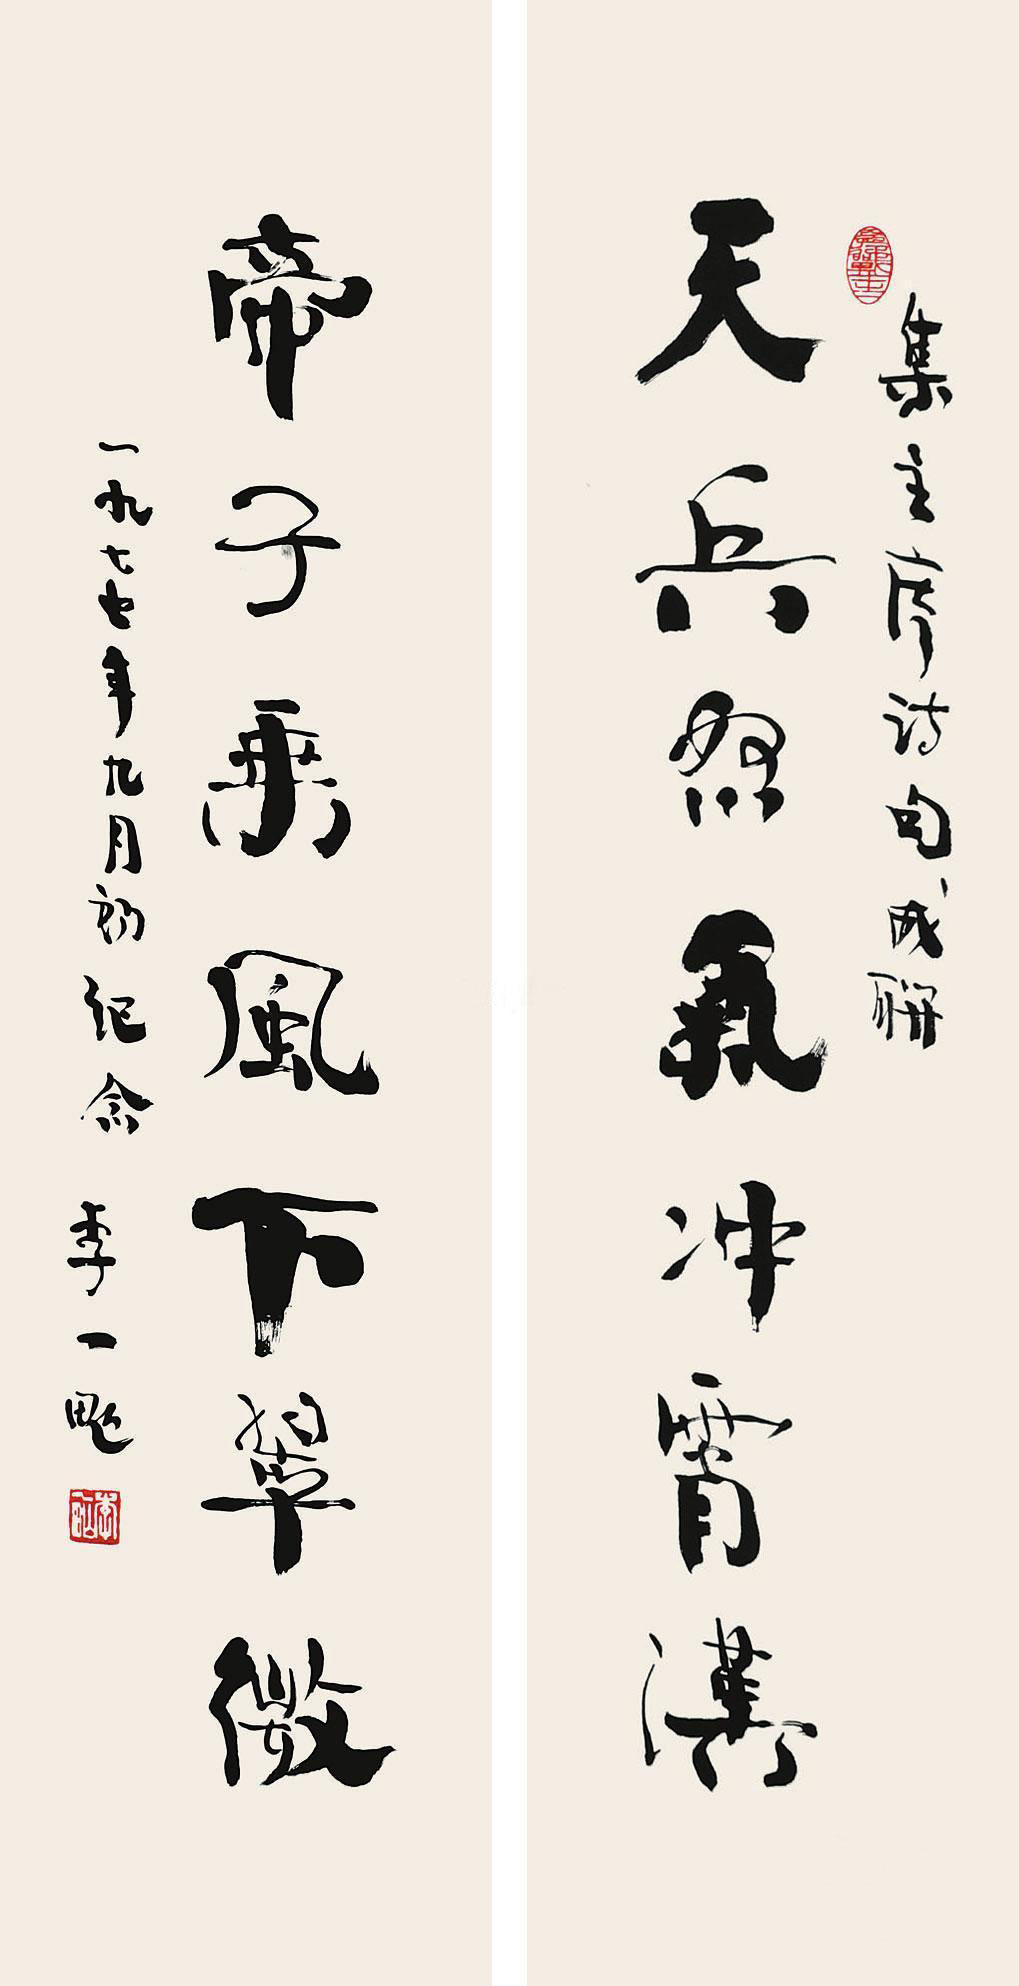 集主席诗句成聯
天兵怒氣冲霄漢
帝子乘風下翠微
一九七七年九月初纪念
李一